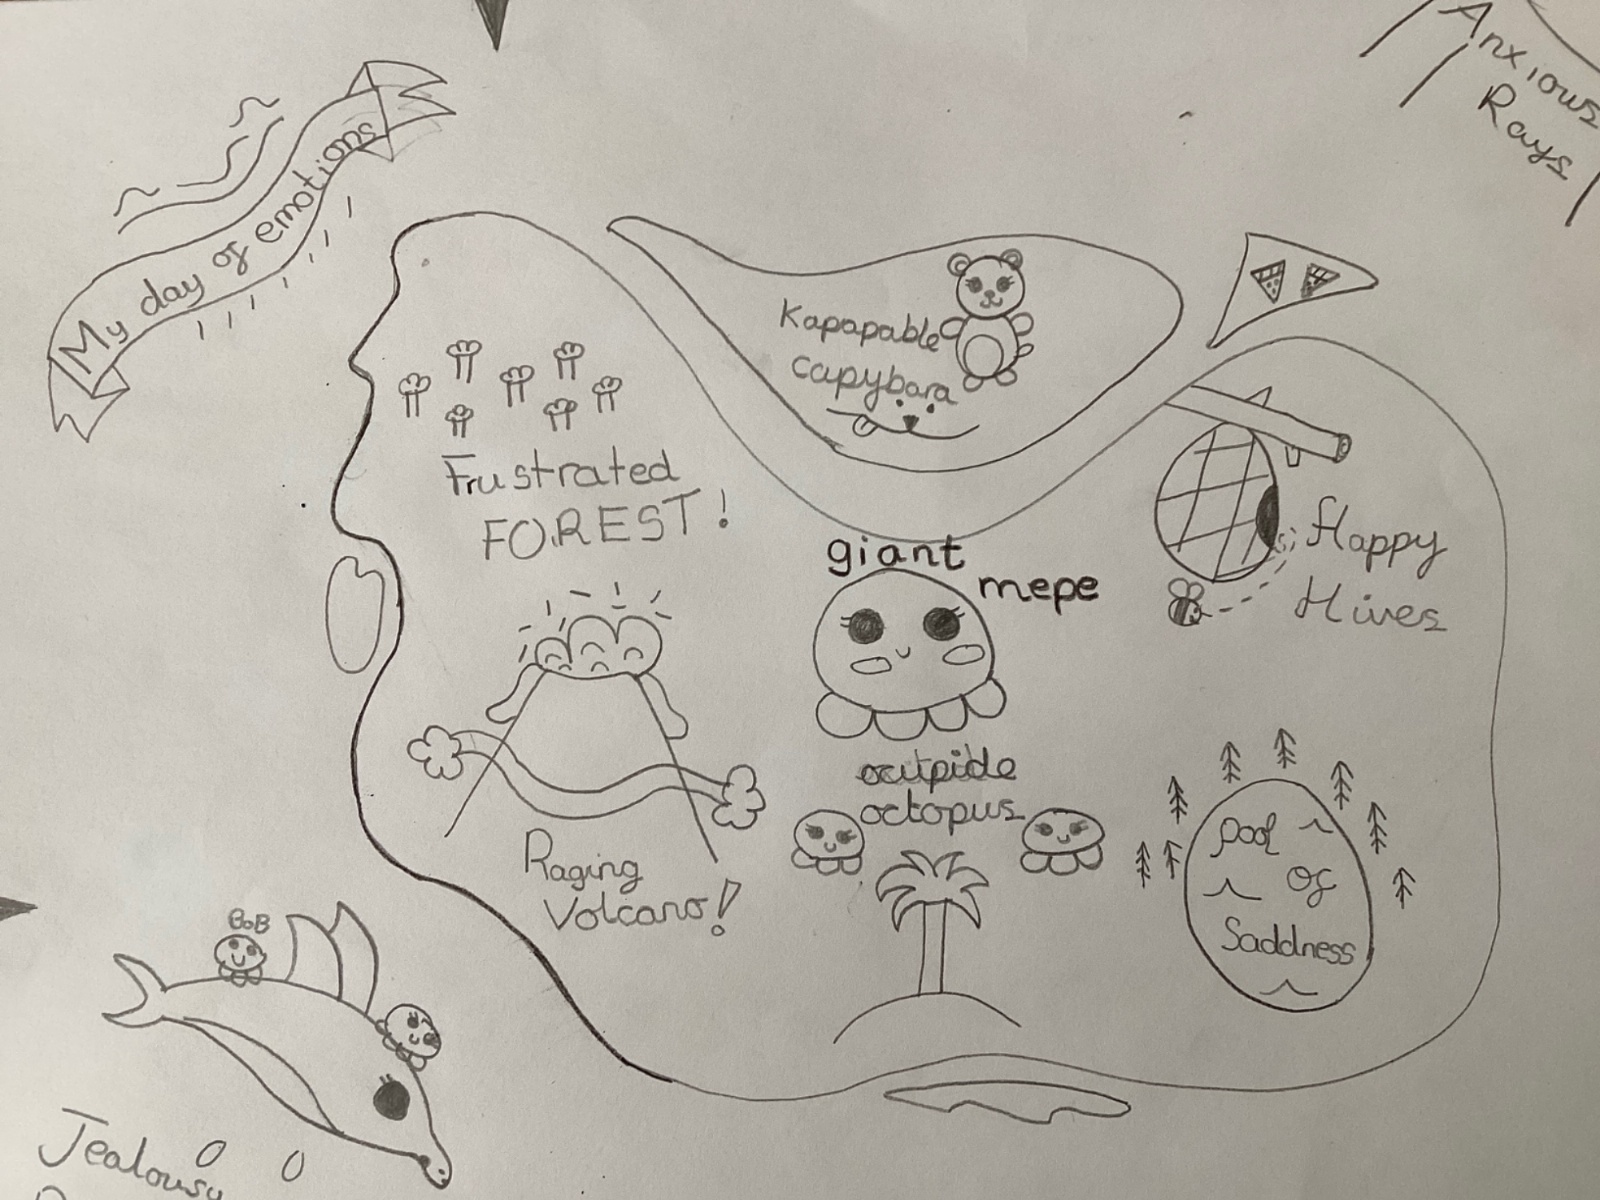 My day of emotions
Anxious
Rays
Kapapable
capybara
Frustrated
FOREST!
giant
mepe
Happy
Hives
octopus
Raging
Volcano!
pool
of
Saddness
BoB
Jealousy